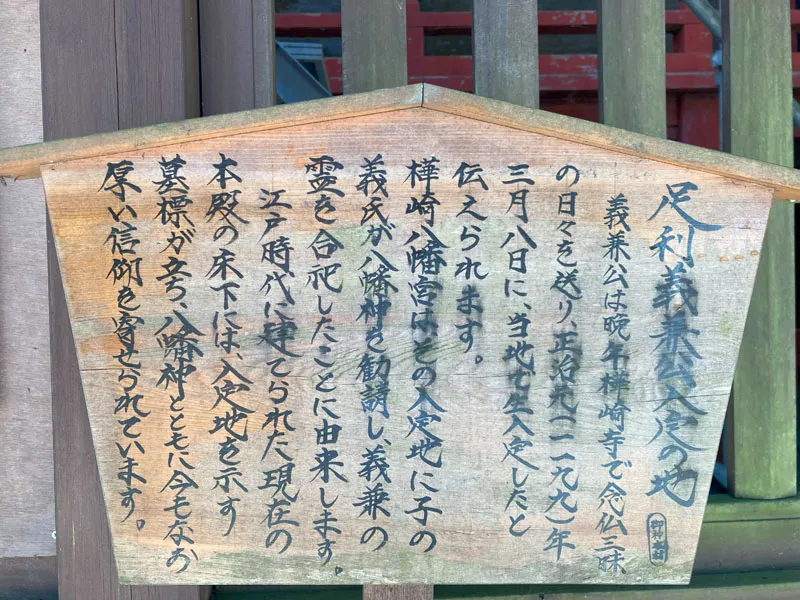 足利義兼公入定の地
義兼公は晩年樺崎寺で念仏三昧
の日々を送り、正治元(一一九九)年
三月八日に、当地で生入定したと
伝えられます。
樺崎八幡宮は、その入定地に子の
義氏が八幡神を勧請し、義兼の
霊を合祀したことに由来します。
江戸時代に建てられた現在の
本殿の床下には、入定地を示す
墓標が立ち、八幡神とともに今もなお
厚い信仰を寄せられています。